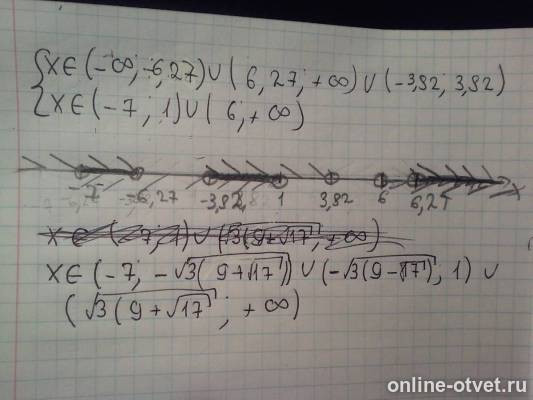 { X ∈ (-∞; -6,27) ∪ (6,27; +∞) ∪ (-3,82; 3,82)
{ X ∈ (-7; 1) ∪ (6; +∞)
-7 -6,27 -3,82 1 3,82 6 6,27 X
X ∈ (-7; -√3(9+√17)) ∪ (-√3(9-√17); 1) ∪
(√3(9+√17; +∞)
online-otvet.ru